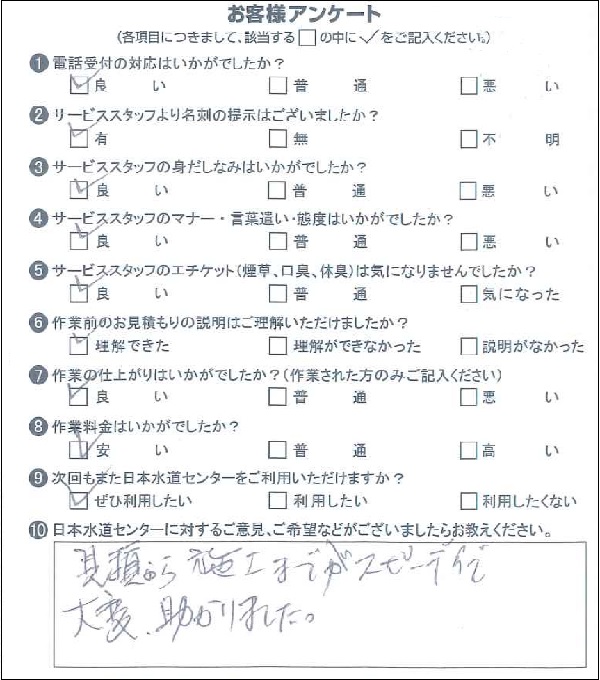 お客様アンケート
(各項目につきまして、該当する□の中に✓をご記入ください。)
❶ 電話受付の対応はいかがでしたか?
☑ 良い □ 普通 □ 悪い
❷ サービススタッフより名刺の提示はございましたか?
☑ 有 □ 無 □ 不明
❸ サービススタッフの身だしなみはいかがでしたか?
☑ 良い □ 普通 □ 悪い
❹ サービススタッフのマナー・言葉遣い・態度はいかがでしたか?
☑ 良い □ 普通 □ 悪い
❺ サービススタッフのエチケット(煙草、口臭、体臭)は気になりませんでしたか?
☑ 良い □ 普通 □ 気になった
❻ 作業前のお見積もりの説明はご理解いただけましたか?
☑ 理解できた □ 理解ができなかった □ 説明がなかった
❼ 作業の仕上がりはいかがでしたか?(作業された方のみご記入ください)
☑ 良い □ 普通 □ 悪い
❽ 作業料金はいかがでしたか?
☑ 安い □ 普通 □ 高い
❾ 次回もまた日本水道センターをご利用いただけますか?
☑ ぜひ利用したい □ 利用したい □ 利用したくない
❿ 日本水道センターに対するご意見、ご希望などがございましたらお教えください。
見積から施工までがスピーディで
大変、助かりました。